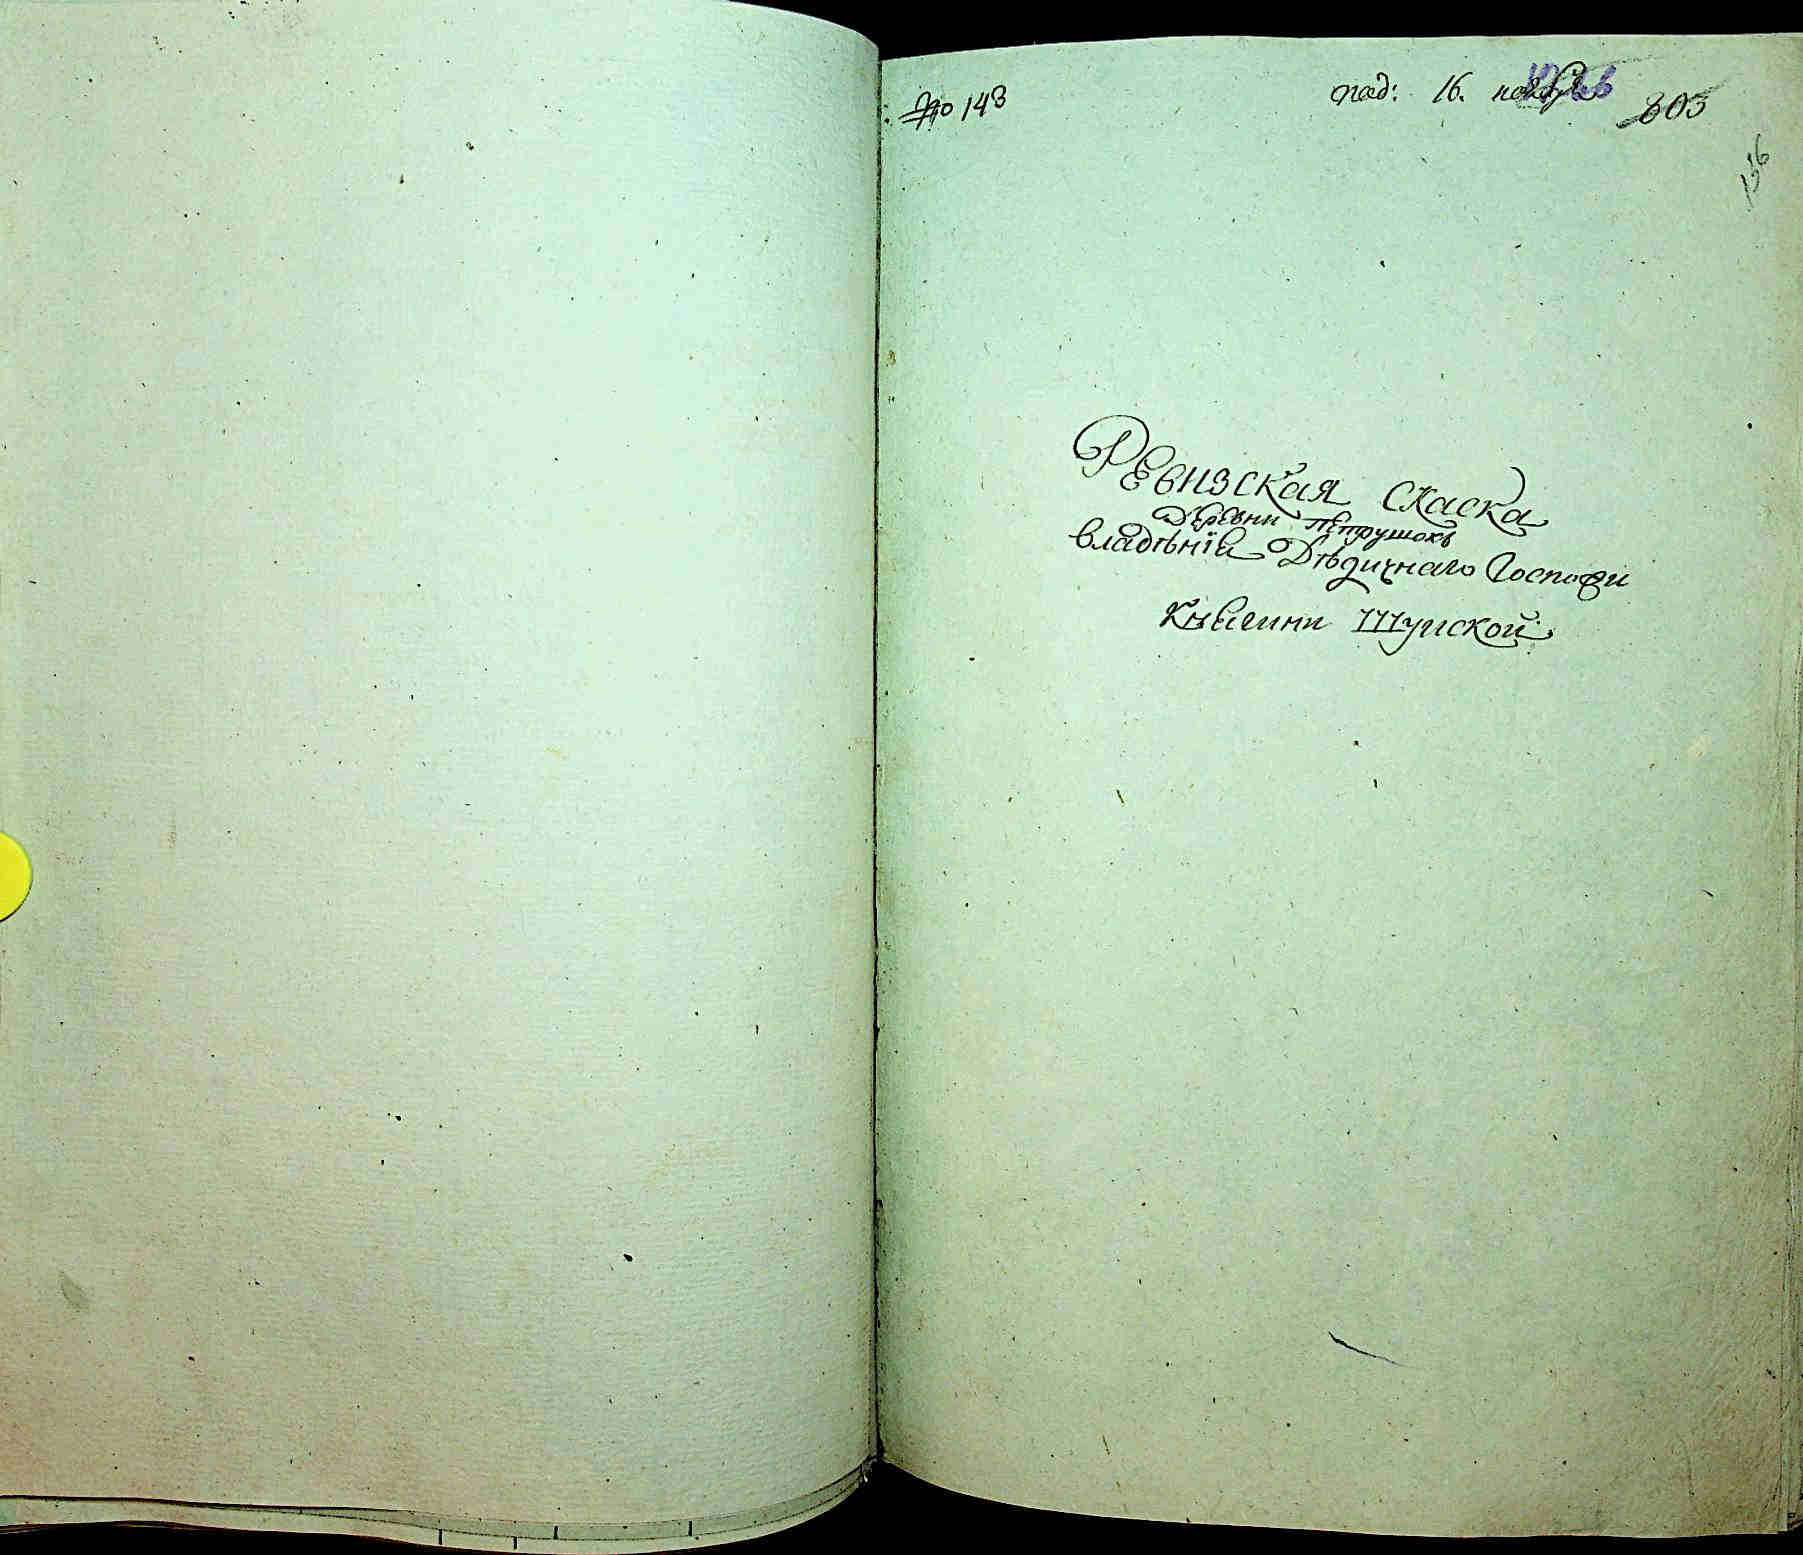 № 143
под: 16. ноября
803
156
Ревизская Скаска
Деревни Петрушокъ
владѣнїя Дѣдичнаго Госпожи
Княгини Шуйской